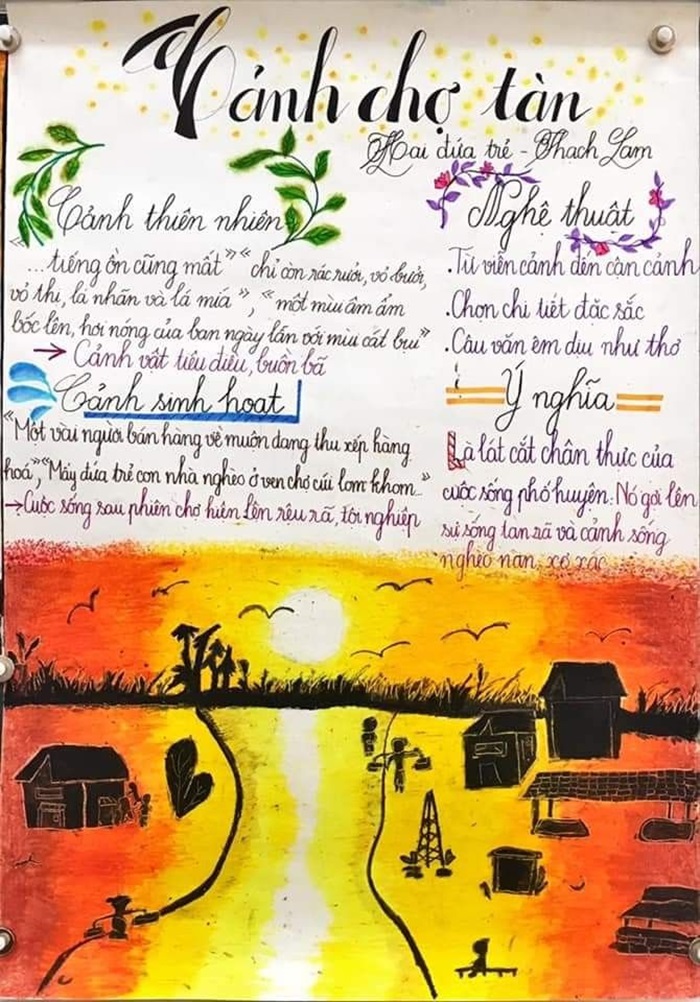 Cảnh chợ tàn
Hai đứa trẻ - Thạch Lam
Cảnh thiên nhiên
"...tiếng ồn cũng mất" "chỉ còn rác rưởi, vỏ bưởi,
vỏ thị, lá nhãn và lá mía", "một mùi âm ẩm
bốc lên, hơi nóng của ban ngày lẫn với mùi cát bụi"
→ Cảnh vật tiêu điều, buồn bã
Cảnh sinh hoạt
"Một vài người bán hàng về muộn đang thu xếp hàng
hoá", "Mấy đứa trẻ con nhà nghèo ở ven chợ cúi lom khom..."
→ Cuộc sống sau phiên chợ hiện lên rêu rã, tội nghiệp
Nghệ thuật
. Từ viễn cảnh đến cận cảnh
. Chọn chi tiết đặc sắc
. Câu văn êm dịu như thơ
Ý nghĩa
Là lát cắt chân thực của
cuộc sống phố huyện. Nó gợi lên
sự sống tan rã và cảnh sống
nghèo nàn, xơ xác